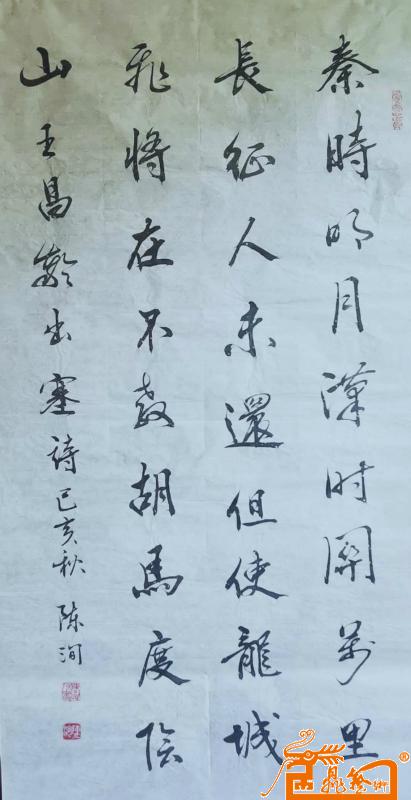 秦時明月漢时關萬里
長征人未還但使龍城
飛將在不教胡馬度陰
山王昌齡出塞詩己亥秋陈洵